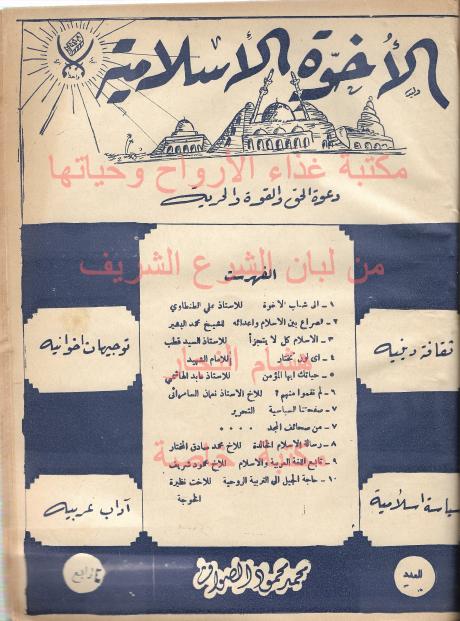 الأخوّة الإسلامية
مكتبة غذاء الأرواح وحياتها
دعوة الحق والقوة والحرية
من لبان الشرع الشريف
الفهرست
١ - الى شباب الاخوة للاستاذ علي الطنطاوي
٢ - الصراع بين الاسلام واعدائه للشيخ محمد البشير
٣ - الاسلام كل لا يتجزأ للاستاذ السيد قطب
٤ - اى لون تختار للامام الشهيد
٥ - حياتك ايها المؤمن للاستاذ عابد الهاشمي
٦ - لم نقموا منهم ؟ للاخ الاستاذ نعمان السامرائي
٧ - صفحتنا السياسية التحرير
٧ - من صحائف المجد ٠ ٠ ٠ ٠
٨ - رسالة الاسلام الخالدة للاخ محمد صادق المختار
٩ - تابع اللغة العربية والاسلام للاخ محمود شريف
١٠ - حاجة الجيل الى التربية الروحية للاخت نظيرة
ثقافة دينية
توجيهات اخوانية
هشام النجار
مكتبة خاصة
سياسة اسلامية
آداب عربية
العدد
محمد محمود الصواف
رابع